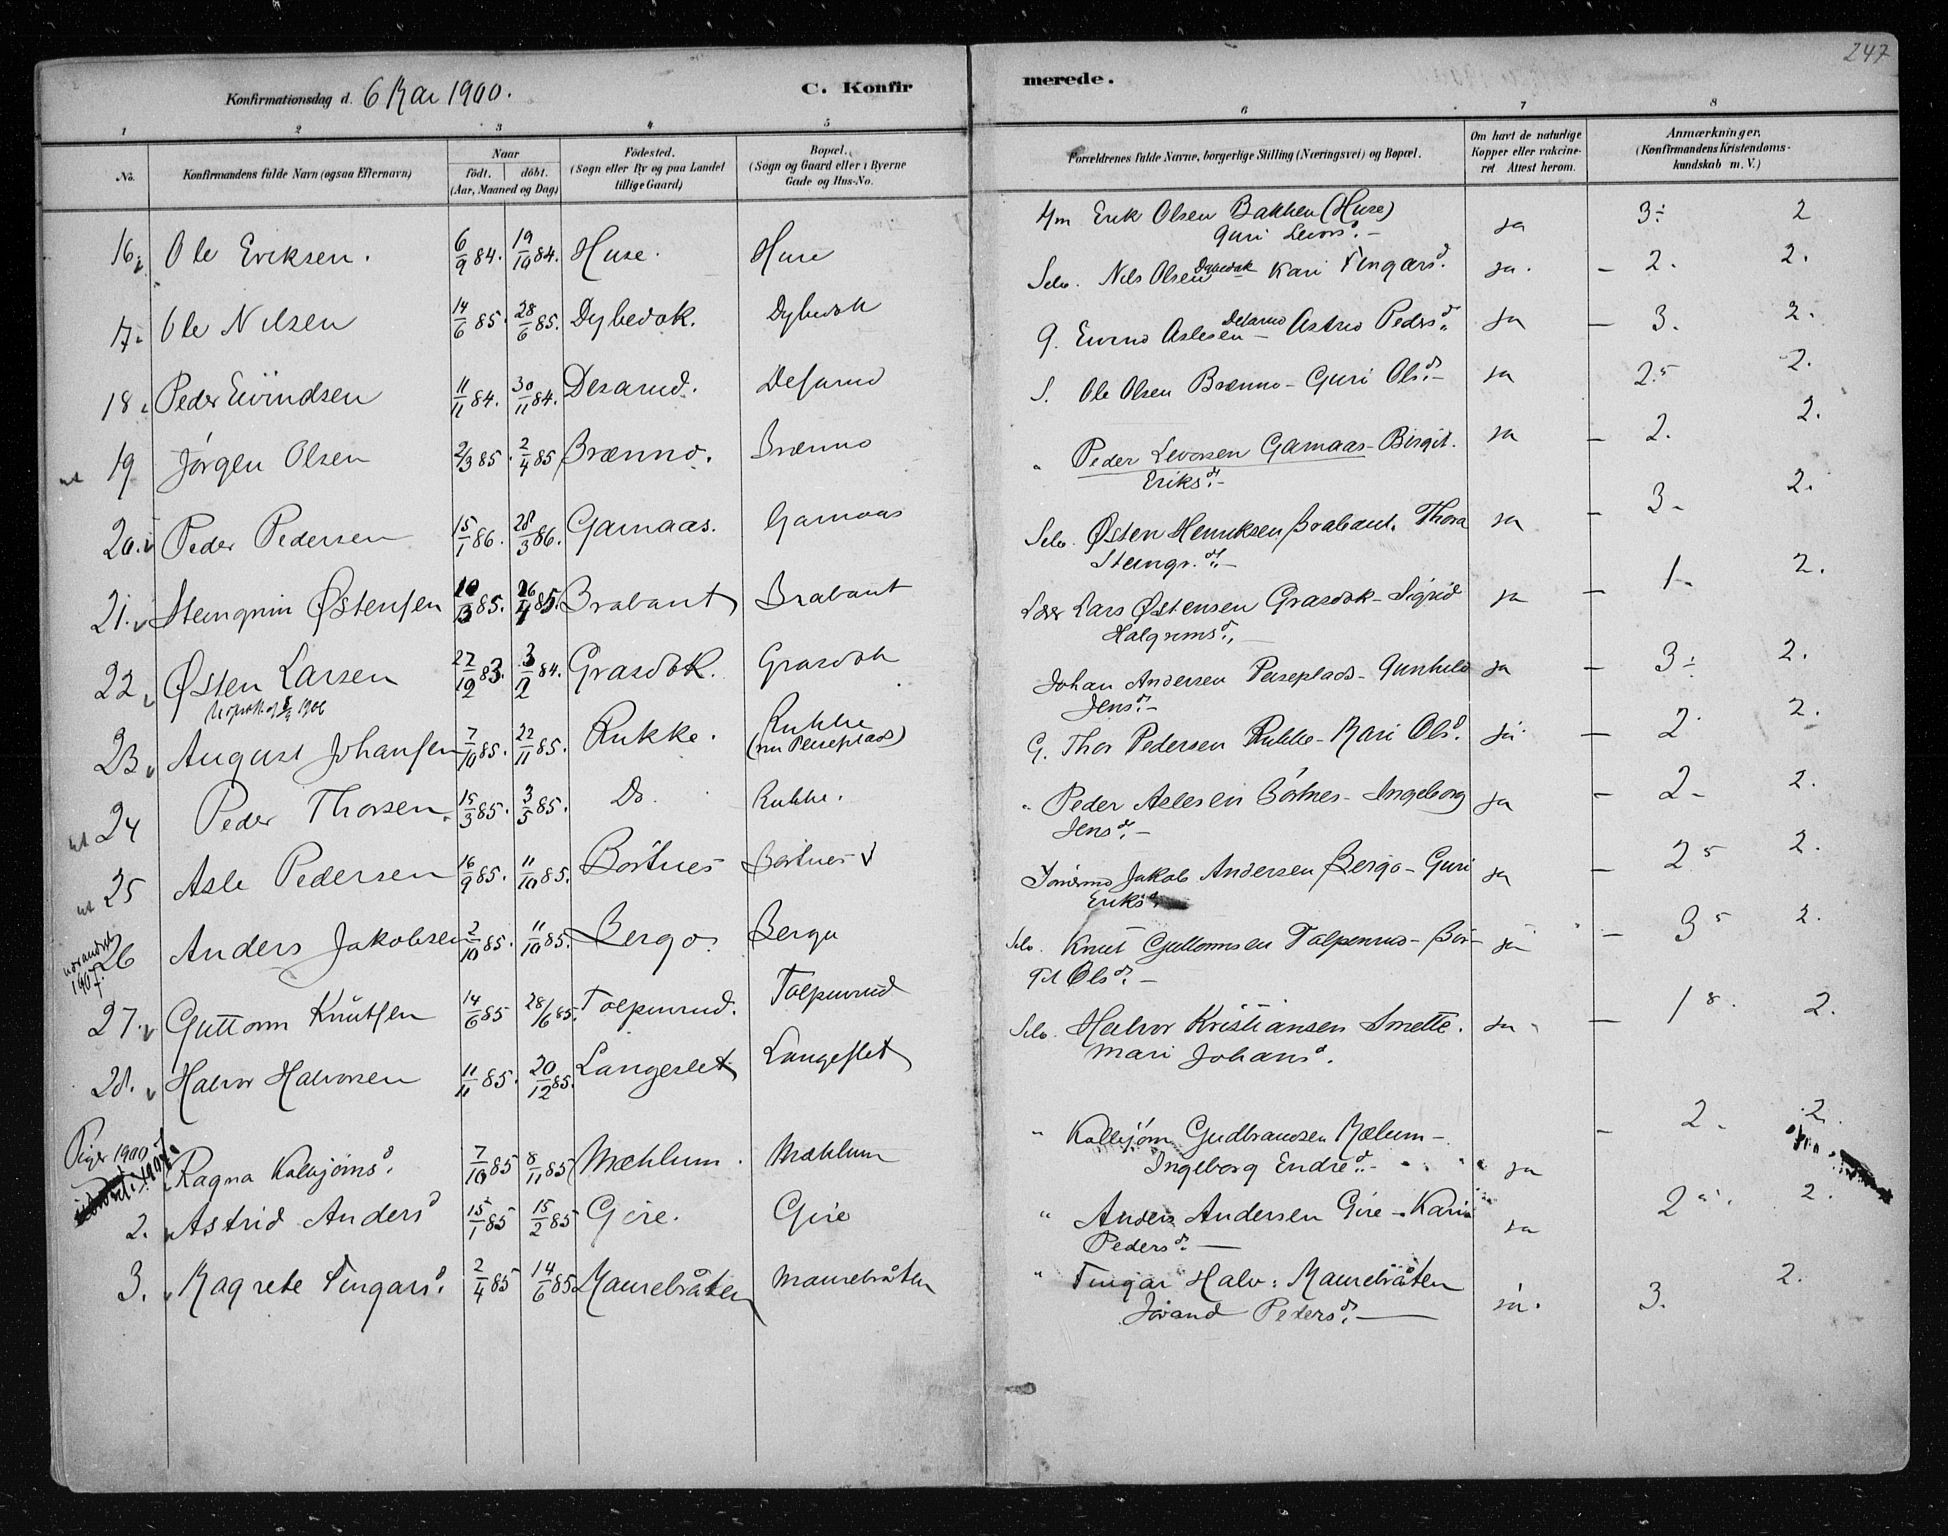 247
Konfirmationsdag d. 6 Mai 1900. C. Konfirmerede.
1 2 3 4 5 6 7 8
No. Konfirmandens fulde Navn (ogsaa Efternavn) Naar født. døbt. (Aar, Maaned og Dag) Fødested. (Sogn eller By og paa Landet tillige Gaard) Bopæl. (Sogn og Gaard eller i Byerne Gade og Hus-No. Forældrenes fulde Navne, borgerlige Stilling (Næringsvei) og Bopæl. Om havt de naturlige Kopper eller vakcineret. Attest herom. Anmærkninger. (Konfirmandens Kristendomskundskab m. V.)
16. Ole Eriksen. 6/9 84. 19/10 84. Huse. Huse Erik Olsen Bakken (Huse) ja 3÷ 2
Guri Levors d.–
17. Ole Nilsen 14/6 85. 28/6 85. Dybedok. Dybedok Selv. Nils Olsen Dybedok Kari Tingars d. ja. – 2. 2.
18. Peder Eivindsen 11/11 84. 30/11 84. Desarud. Desarud G. Eivind Aslesen Desarud – Astrid Peders d. ja – 3. 2.
19 Jörgen Olsen 2/3 85. 2/4 85 Brænno. Brænno S. Ole Olsen Brænno – Guri Ols d.– ja 2.5 2.
20. Peder Pedersen 15/1 86. 28/3 86. Garnaas. Garnaas " Peder Levorsen Garnaas – Birgit. ja – 2. 2.
Eriks d.–
21. Steingrim Østensen 10/3 85. 26/4 85. Brabant Brabant Selv. Østen Henriksen Brabant. Thora ja – 3– 2.
Steingr. d.–
22. Østen Larsen 27/12 83. 3/2 84. Grasdok. Grasdok Lars Østensen Grasdok – Sigrid ja – 1– 2.
1906 Halgrims d. –
23 August Johansen 7/10 85. 22/11 85. Rukke. Rukke Johan Andersen Perseplads – Gunhild ja – 3÷ 2.
(nu Perseplads) Jens d.–
ut 24 Peder Thorsen. 15/3 85. 3/5 85. Do. Rukke. G. Thor Pedersen Rukke – Kari Ols d. ja – 2. 2.
ut 25 Asle Pedersen 16/9 85. 11/10 85. Börtnes Börtnes " Peder Aslesen Börtnes – Ingeborg ja – 2– 2.
Jens d.–
26 Anders Jakobsen 2/10 85. 11/10 85. Bergo. Bergo Jakob Andersen Bergo – Guri ja – 2 5 2.
1907. Eriks d.
27. Guttorm Knutsen 14/6 85 28/6 85. Tolpinrud. Tolpinrud Selv. Knut Guttormsen Tolpinrud – Bir- ja – 3 5 2.
git Ols d.–
28. Halvor Halvorsen 11/11 85. 20/12 85. Langeslet Langeslet Selv. Halvor Kristiansen Smette. ja – 1 8. 2.
Mari Johans d.
Piger 1900
Ragna Kolbjörns d. 7/10 85 8/11 85 Mæhlum. Mæhlum " Kolbjörn Gudbrandsen Mælum – – 2. 2.
Ingeborg Endre d.– ja
2. Astrid Anders d 15/1 85 15/2 85 Gire. Gire " Anders Andersen Gire – Kari ja 2 2.
Peders d. –
3. Magrete Tingars d. 2/4 85 14/6 85 Maurebråten Maurebråten " Tingar Halv: Maurebråten ja. 3. 2.
Jörand Peders d. –